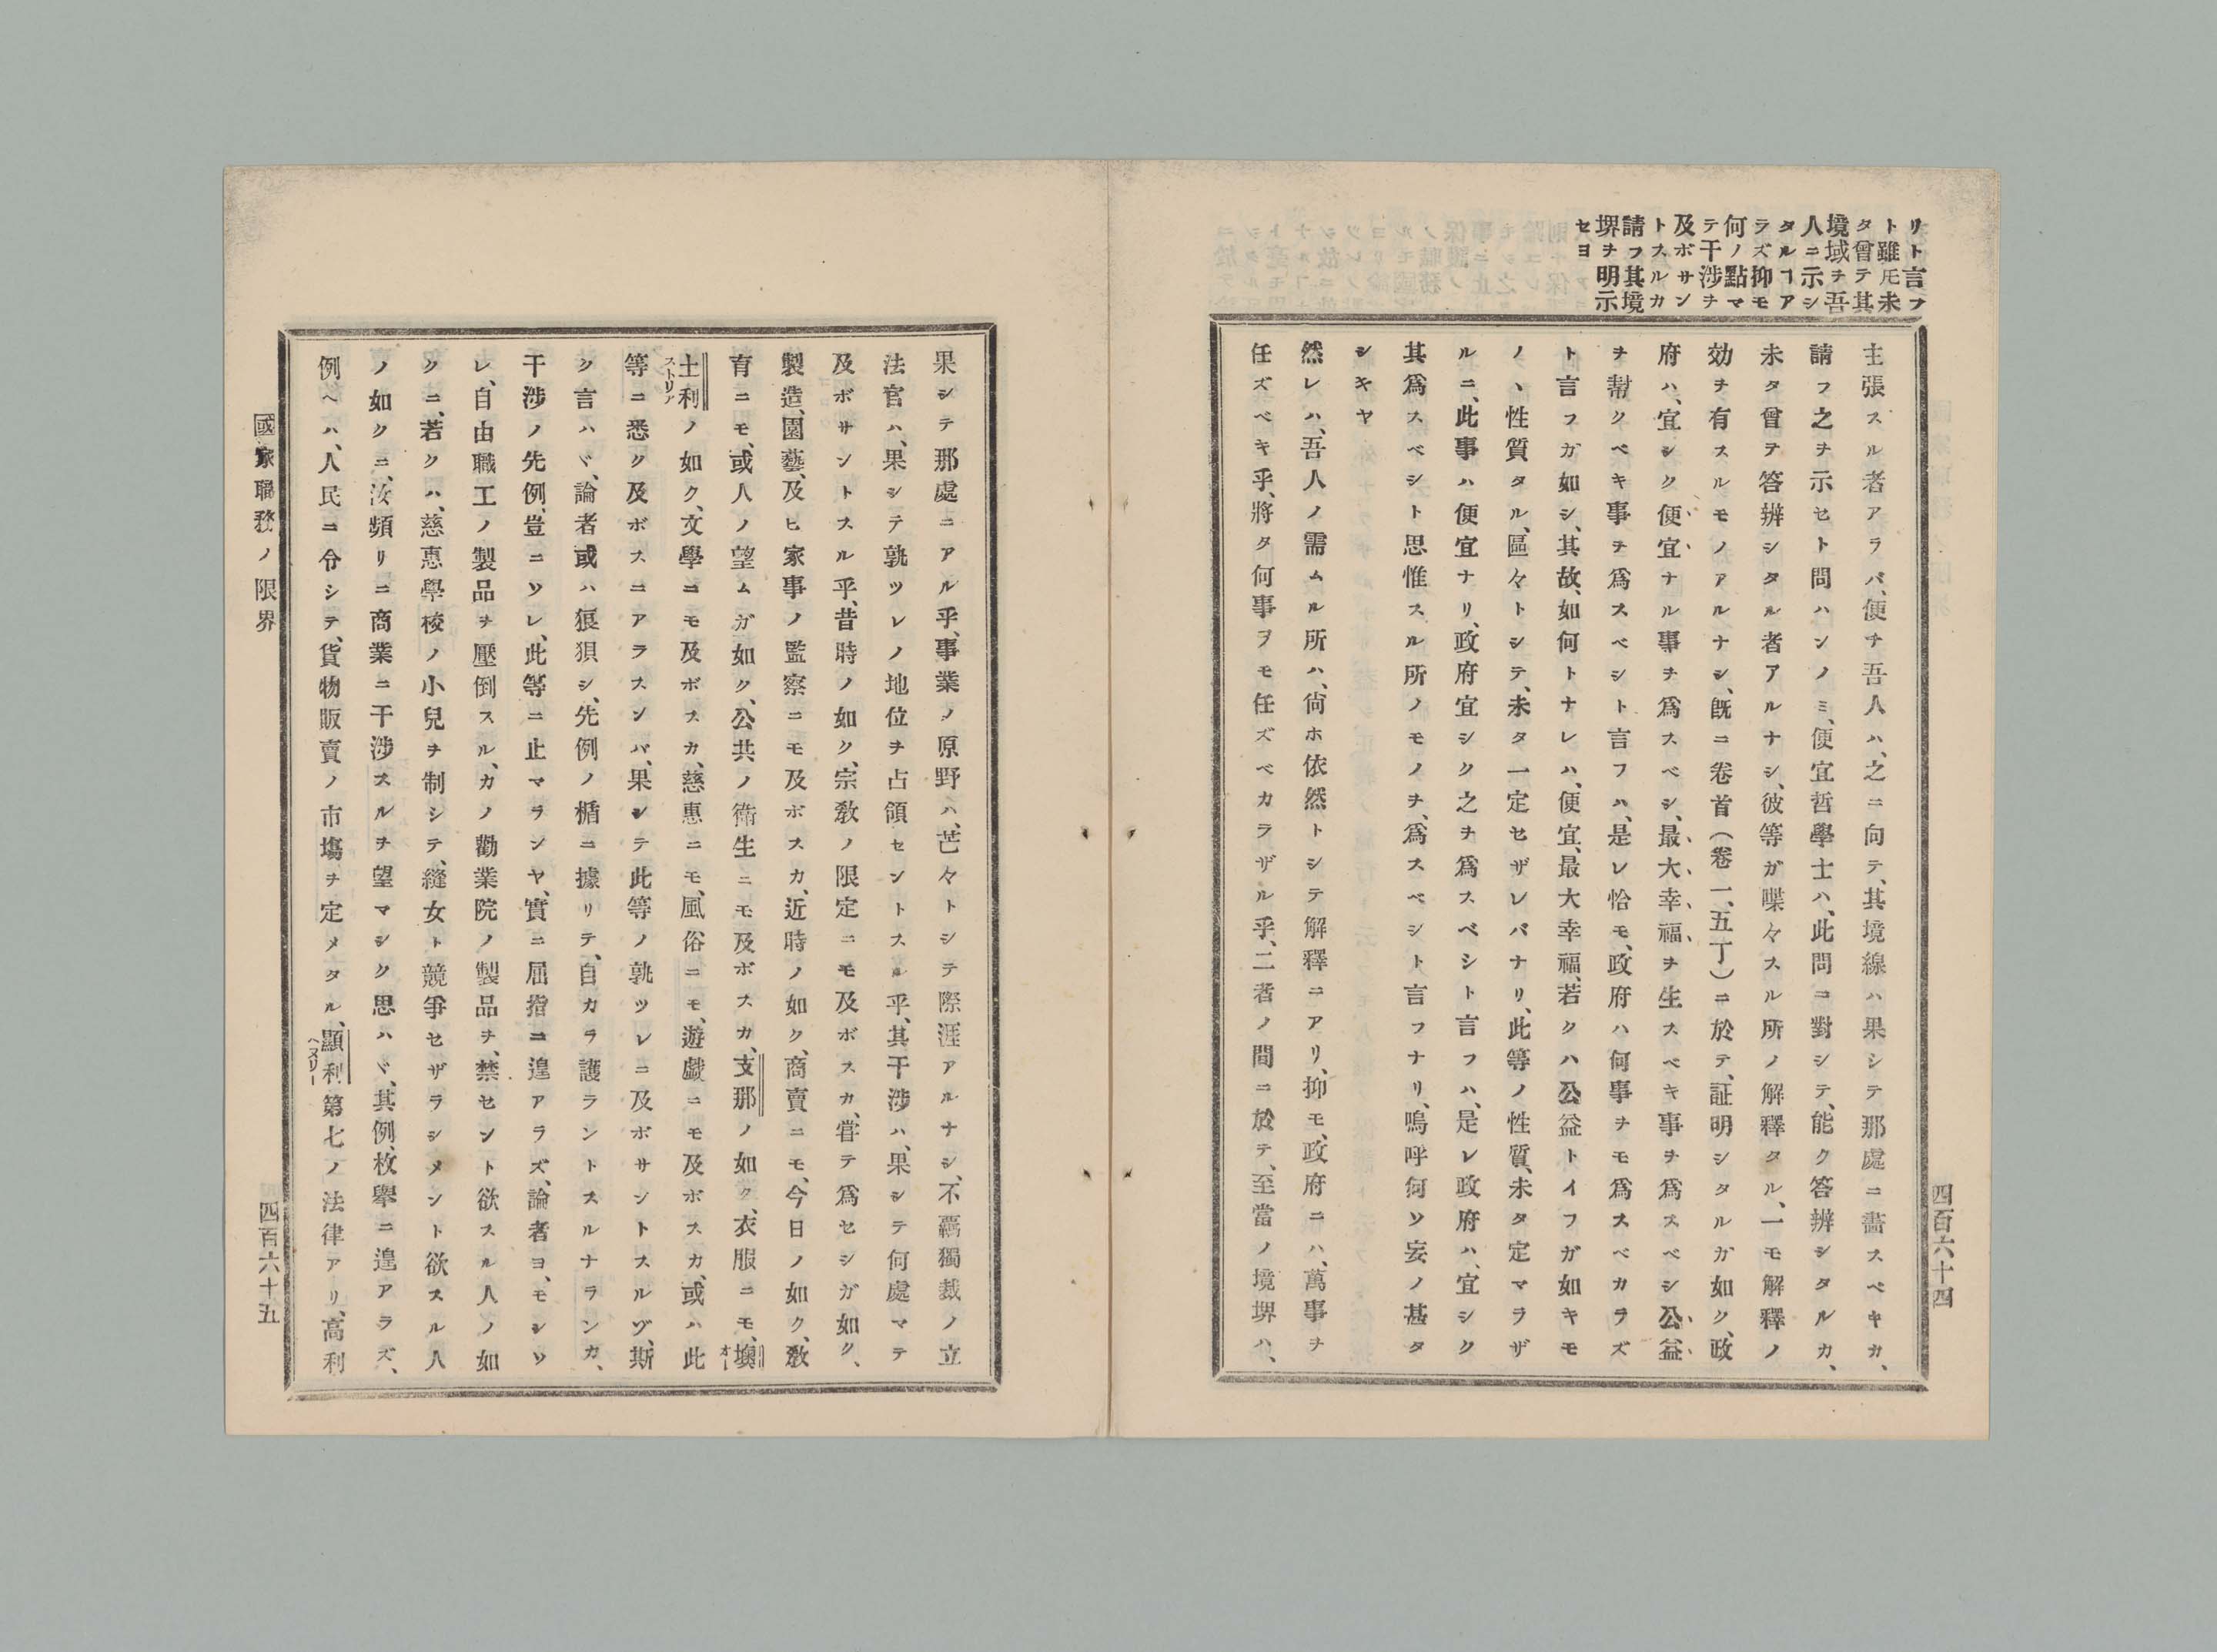 リト言フ
ト雖𪜈未
タ曾テ其
境域チ吾
人ニ示シ
タルヿア
ラズ抑モ
何ノ點マ
テ干涉チ
及ボサン
トスルカ
請フ其境
堺チ明示
セヨ
主張スル者アラバ、便チ吾人ハ、之ニ向テ、其境線ハ果シテ那處ニ畵スベキカ、
請フ之チ示セト問ハンノミ、便宜哲學士ハ、此問ニ對シテ、能ク答辨シタルカ、
未タ曾テ答辨シタル者アルナシ、彼等ガ喋々スル所ノ解釋タル、一モ解釋ノ
効チ有スルモノアルナシ、既ニ卷首(卷一、五丁)ニ於テ、証明シタルガ如ク、政
府ハ、宜シク便宜ナル事チ爲スベシ、最大幸福チ生スベキ事チ爲スベシ公益
チ幇クベキ事チ爲スベシト言フハ、是レ恰モ、政府ハ何事チモ爲スベカラズ
ト言フガ如シ、其故、如何トナレハ、便宜、最大幸福、若クハ公益トイフガ如キモ
ノヽ性質タル、區々トシテ、未タ一定セザレバナリ、此等ノ性質、未タ定マラザ
ルニ、此事ハ便宜ナリ、政府宜シク之チ爲スベシト言フハ、是レ政府ハ、宜シク
其爲スベシト思惟スル所ノモノチ、爲スベシト言フナリ、嗚呼何ソ妄ノ甚タ
シキヤ
然レハ、吾人ノ需ムル所ハ、尙ホ依然トシテ解釋ニアリ、抑モ、政府ニハ、萬事チ
任ズベキ乎、將タ何事ヲモ任ズベカラザル乎、二者ノ間ニ於テ、至當ノ境堺ハ、
四百六十四
果シテ那處ニアル乎、事業ノ原野ハ、芒々トシテ際涯アルナシ、不羈獨裁ノ立
法官ハ、果シテ孰ツレノ地位チ占領セントスル乎、其干涉ハ、果シテ何處マテ
及ボサントスル乎、昔時ノ如ク、宗敎ノ限定ニモ及ボスカ、甞テ爲セシガ如ク、
製造、園藝、及ヒ家事ノ監察ニモ及ボスカ、近時ノ如ク、商賣ニモ、今日ノ如ク、敎
育ニモ、或人ノ望ムガ如ク、公共ノ衛生ニモ及ボスカ、支那ノ如ク、衣服ニモ、墺オー
土利ストリアノ如ク、文學ニモ及ボスカ、慈惠ニモ、風俗ニモ、遊戲ニモ及ボスカ、或ハ此
等ニ悉ク及ボスニアラスンバ、果シテ此等ノ孰ツレニ及ボサントスルヅ、斯
ク言ハヾ、論者或ハ狼狽シ、先例ノ楯ニ據リテ、自カラ護ラントスルナランカ、
干涉ノ先例、豈ニソレ、此等ニ止マランヤ、實ニ屈指ニ遑アラズ、論者ヨ、モシソ
レ、自由職工ノ製品チ壓倒スル、カノ勸業院ノ製品チ、禁セント欲スル人ノ如
クニ、若クハ、慈惠學校ノ小兒チ制シテ、縫女ト競爭セザラシメント欲スル人
ノ如クニ、汝頻リニ商業ニ干涉スルチ望マシク思ハヾ、其例、枚擧ニ遑アラズ、
例ヘハ、人民ニ令シテ、貨物販賣ノ市塲チ定メタル、顯利ヘヌリー第七ノ法律アリ、高利
國家職務ノ限界
四百六十五